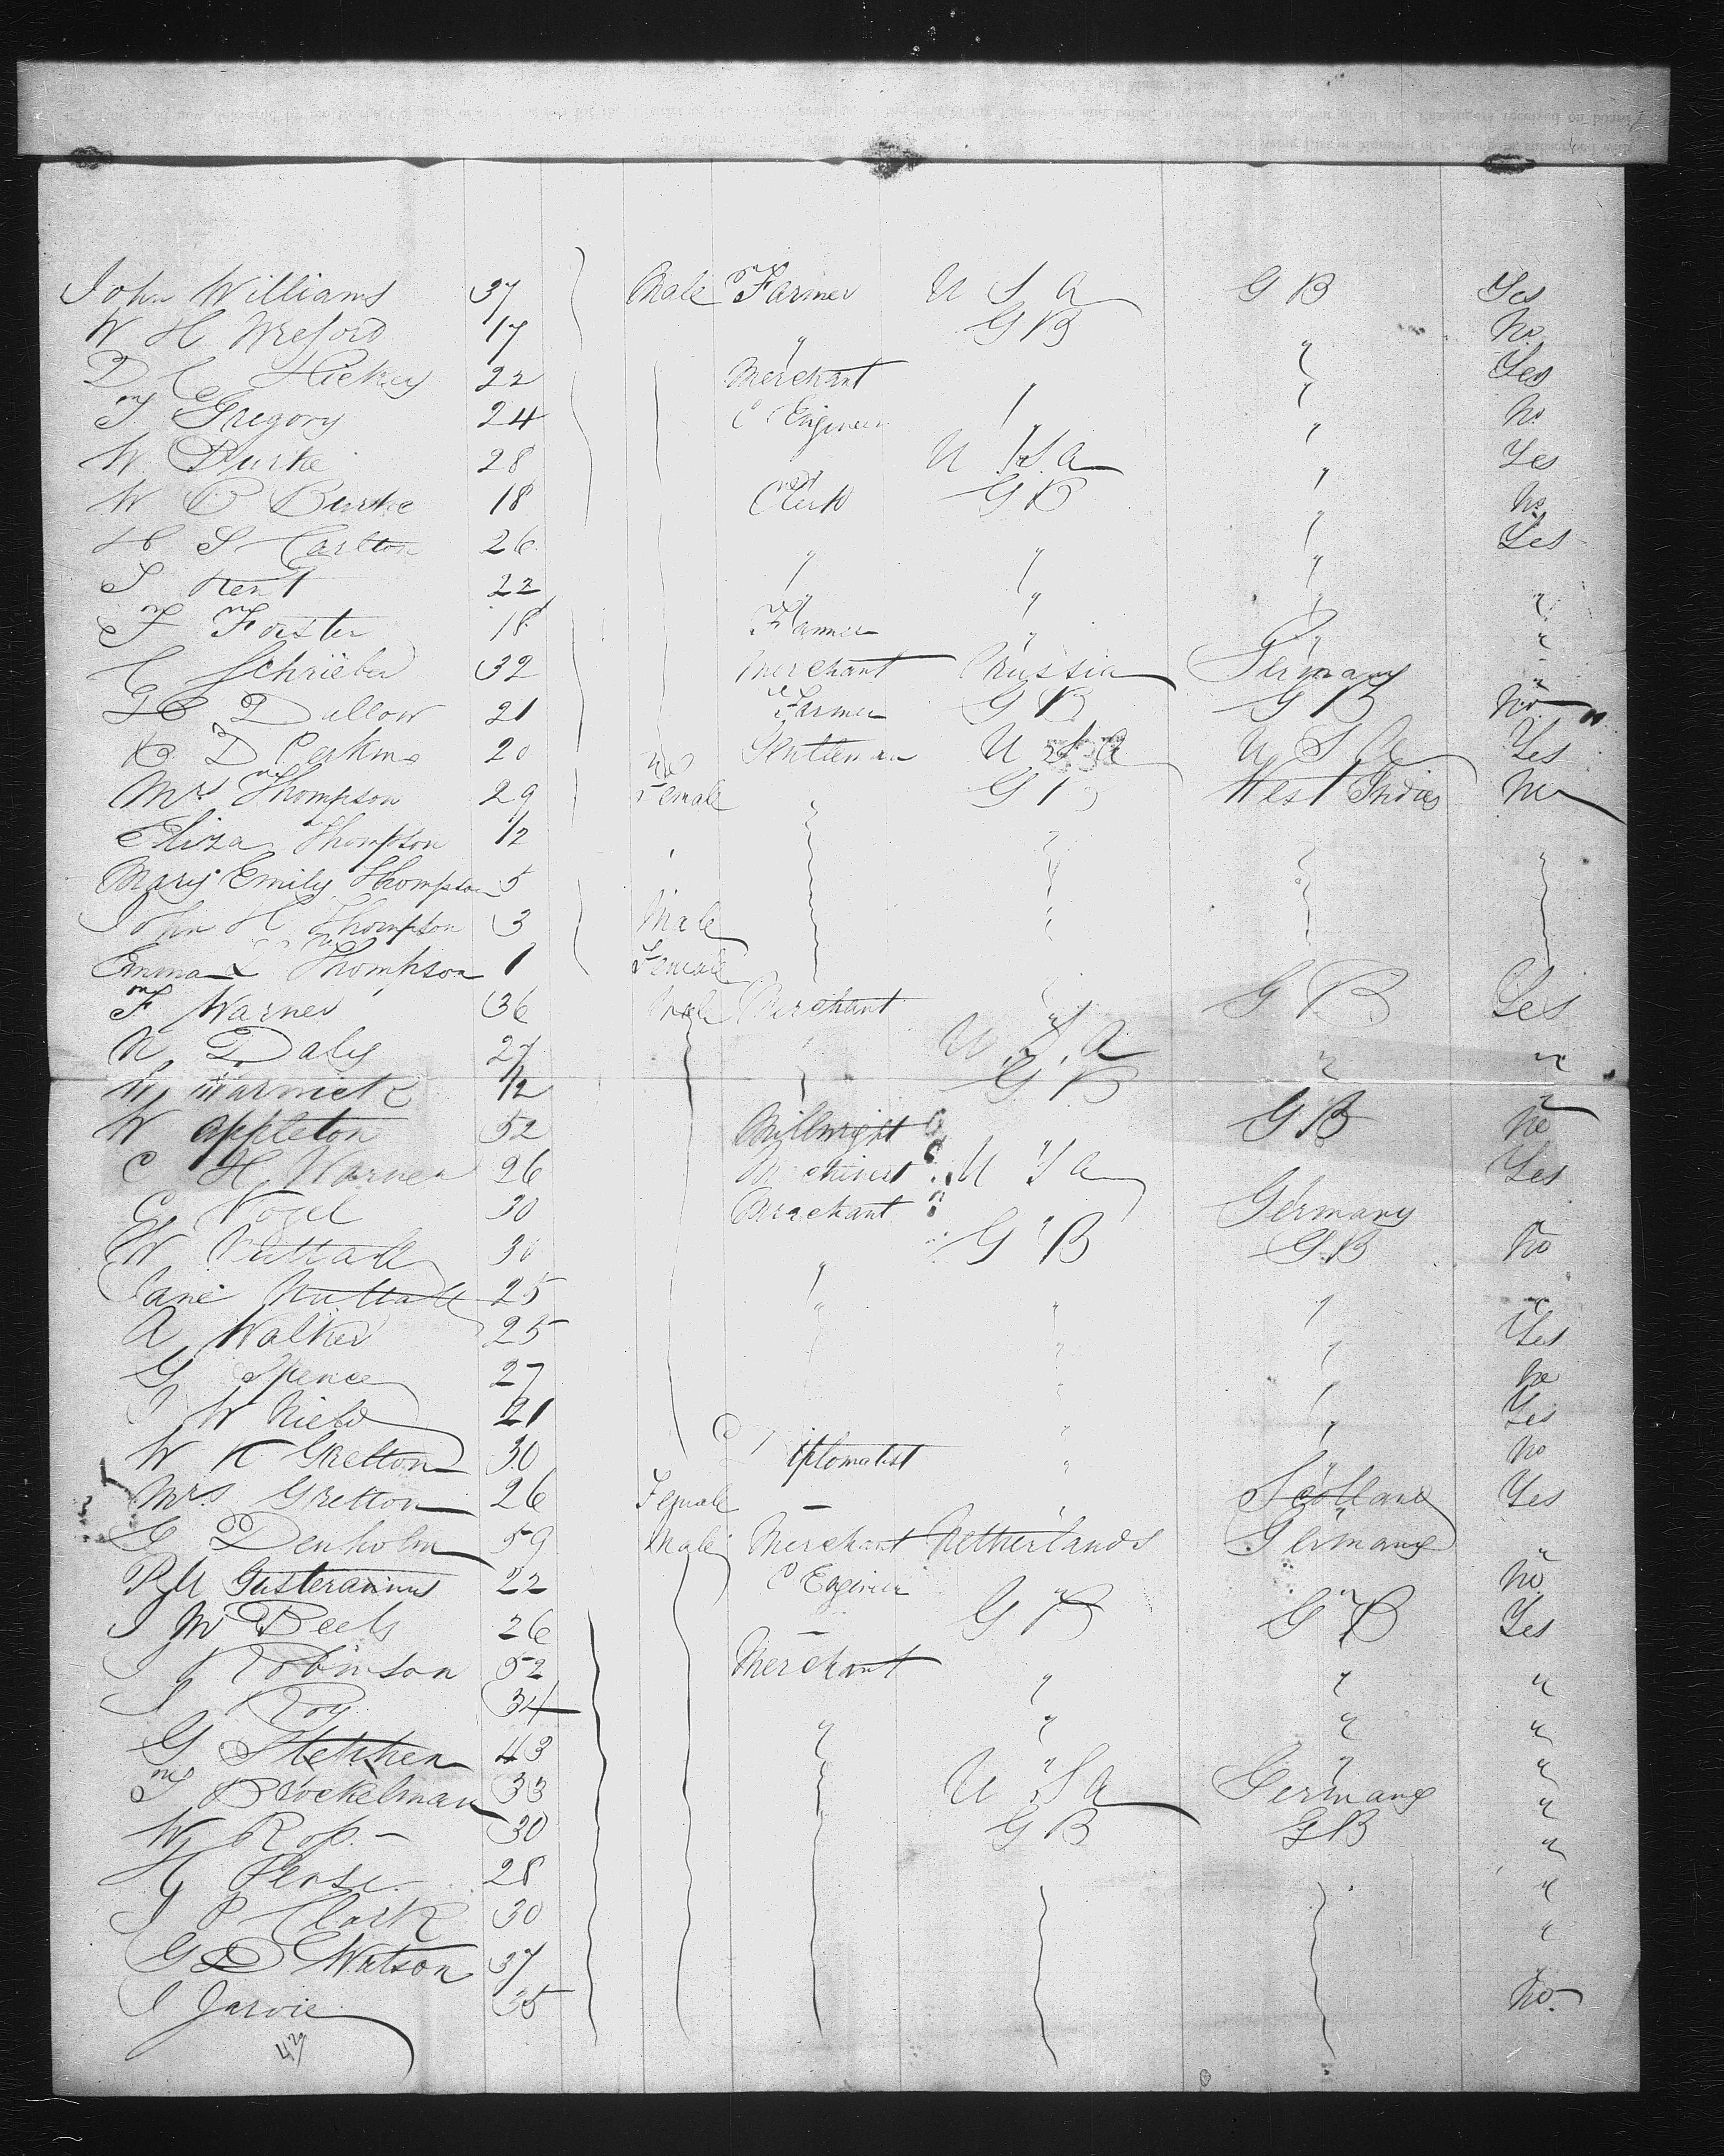 John Williams 37 Male Farmer U S A G B Yes
W H Wreford 17 " G B " No
D C Hickey 22 Merchant " " Yes
T Gregory 24 C Engineer " " No
W. Burke 28 U S A " Yes
W P Burke 18 Clerk G B " No
H S Carlton 26 " " " Yes
S Kent 22 " " " "
F Forster 18 Farmer " " "
C Schrieber 32 Merchant Prussia Germany "
H Dallow 21 Farmer G B G B No
D Perkins 20 Gentleman U S A U S A Yes
Mrs Thompson 29 Female " G B West Indies No
Eliza Thompson 1/2 "
Mary Emily Thompson 5
John H Thompson 3 Male
Emma L Thompson 1 Female
F Warner 36 Male Merchant " G B Yes
N Daly 27 U. S. A " "
W Warwick 42 G B "
W Appleton 52 Millwright G B No
C H Warner 26 Machinist U S A Yes
C Vogel 30 Merchant " Germany
W Nuttall 30 G B G B No
Jane Nuttall 25 " " " "
A Walker 25 " " Yes
G Spence 27 " " No
J W Nield 21 " " Yes
W K Gretton 30 Diplomatist " " No
Mrs Gretton 26 Female — " Scotland Yes
G Denholm 59 Male Merchant Netherlands Germany "
22 C Engineer " " No
J M Beels 26 — G B G B Yes
J Robinson 52 Merchant " " "
J Roy 34 " " "
G Stephen 43 " " " "
T Brockelman 33 U S A Germany "
W Ross — 30 G B G B "
H 28 "
J P Clark 30 "
G Watson 37 "
J Jarvie 35 No.
42